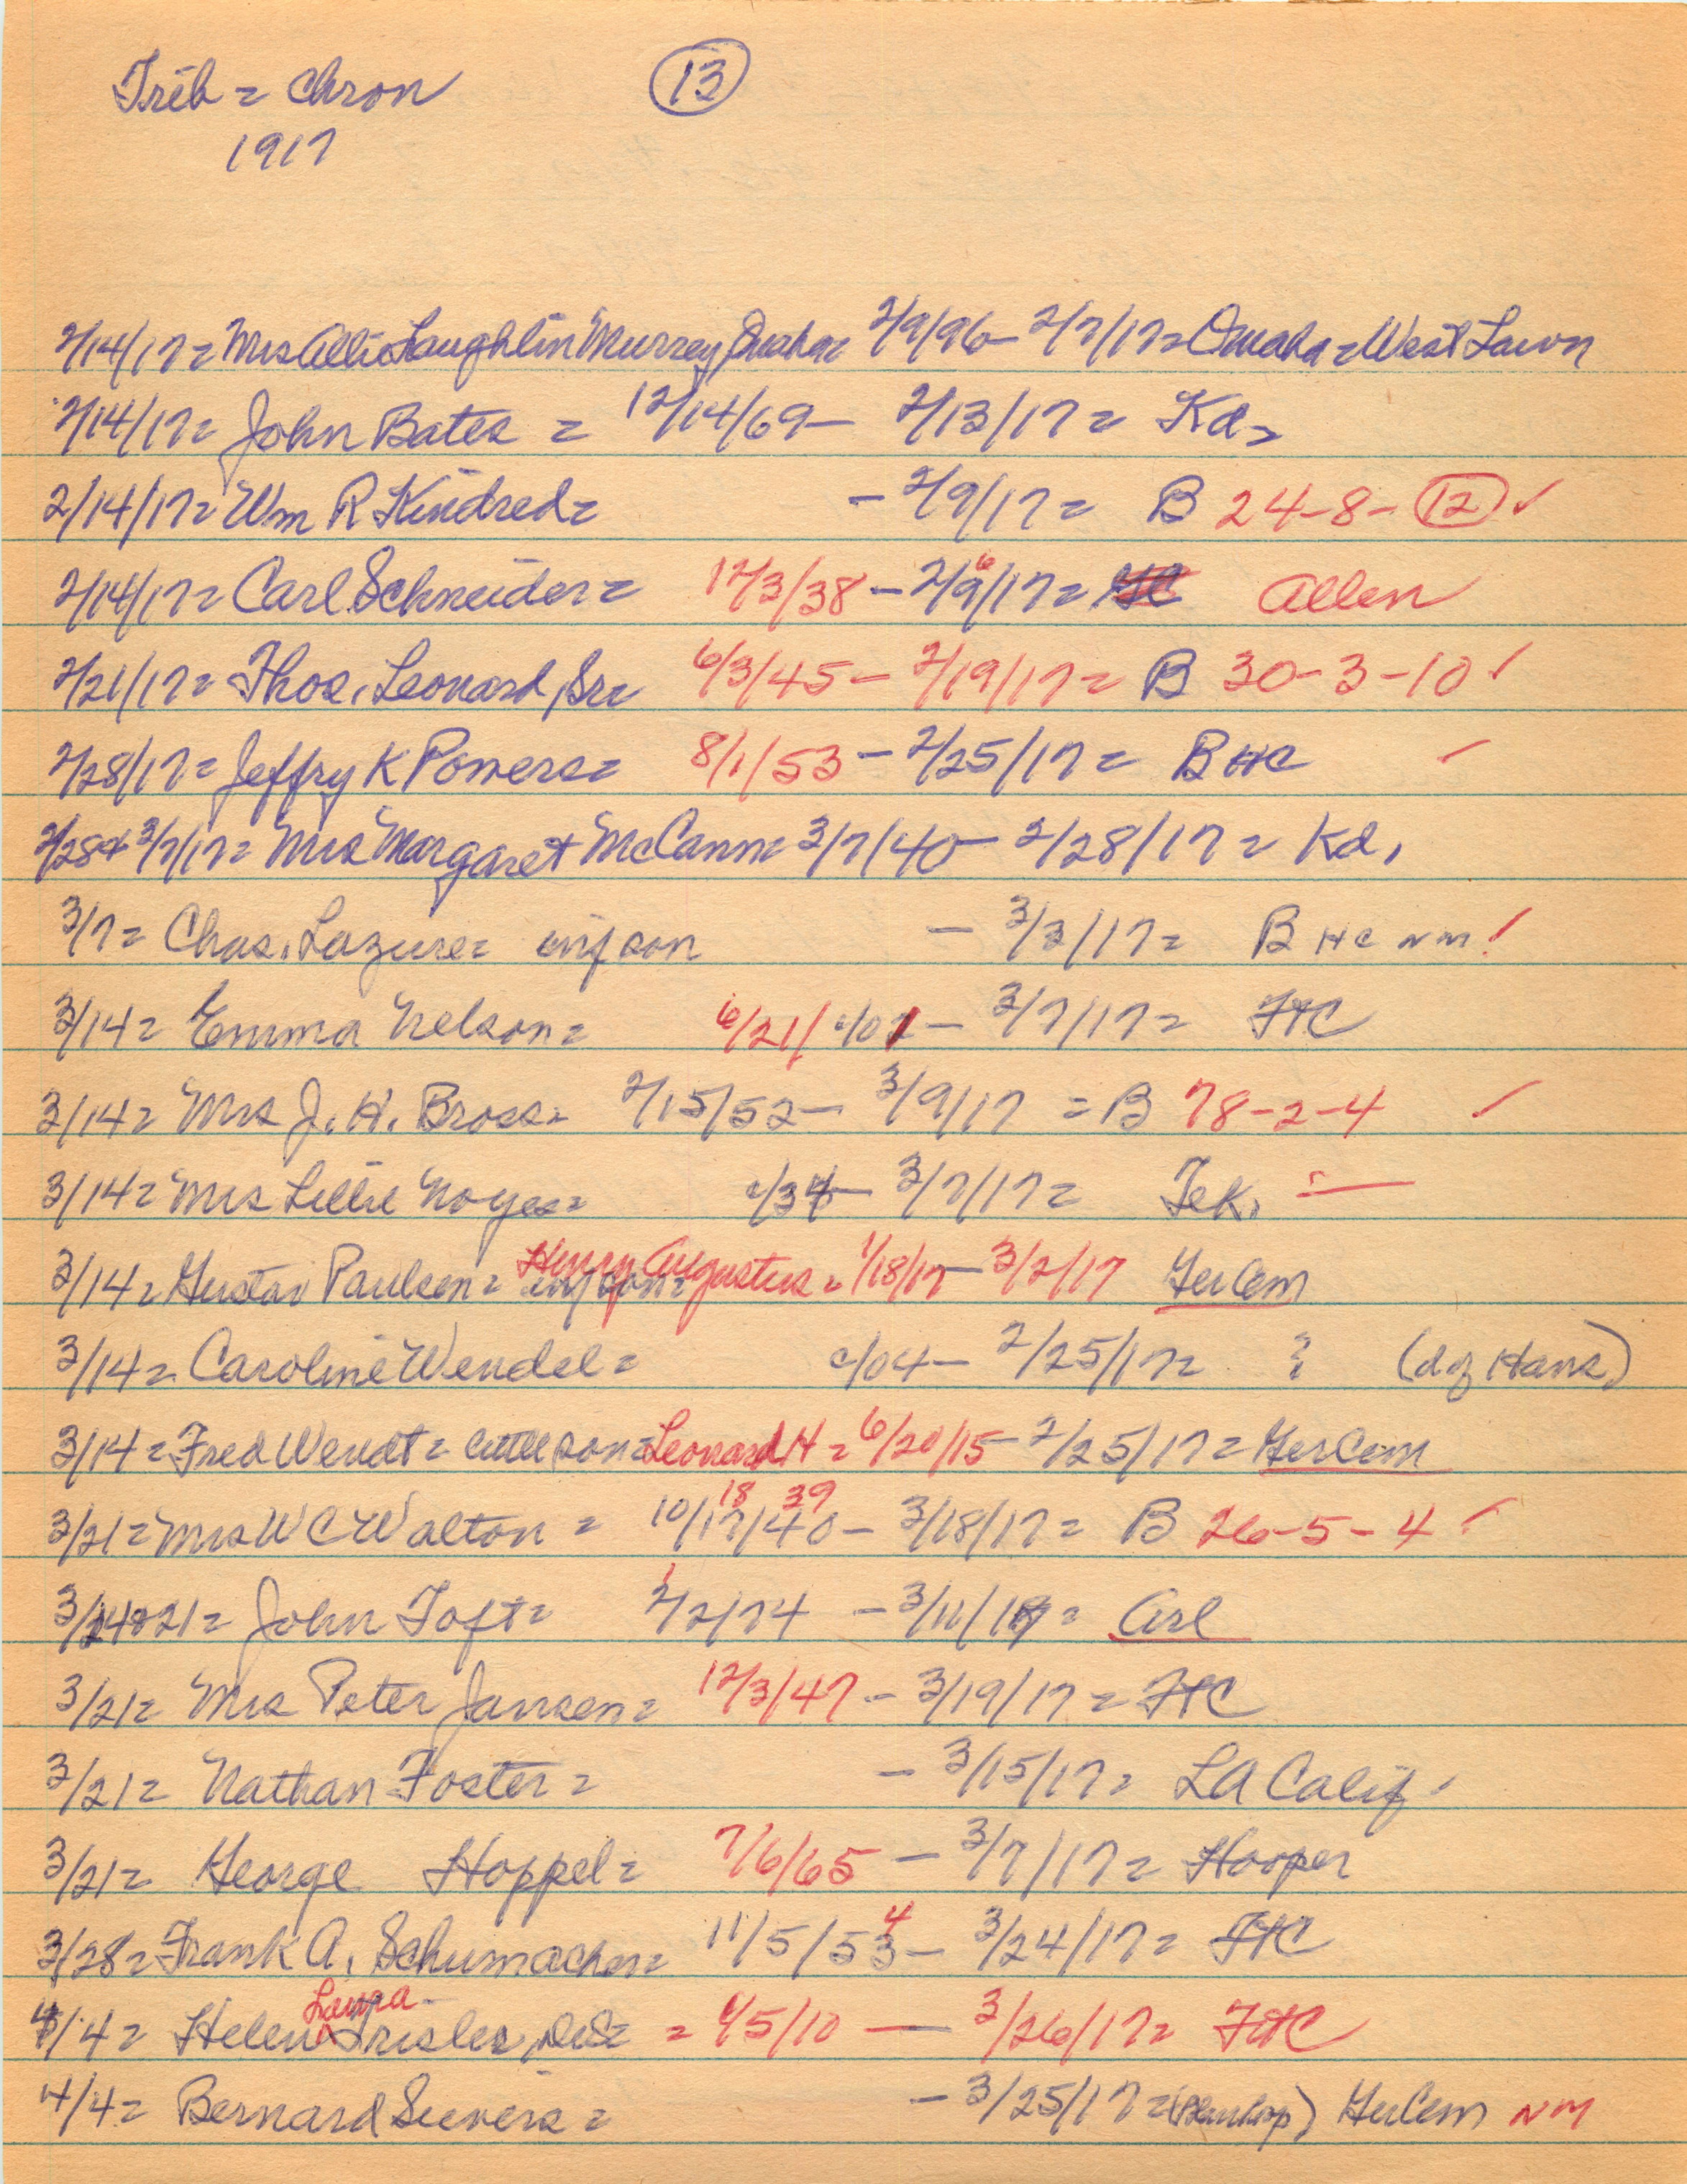 Trib = Chron (13)
1917
2/14/17 = Mrs Allie Laughlin Murrey, Omaha = 2/9/96 - 2/7/17 = Omaha = West Lawn
2/14/17 = John Bates = 12/14/69 - 2/13/17 = Kd =
2/14/17 = Wm R Kindred = - 2/9/17 = B 24-8-(12) ✓
2/14/17 = Carl Schneider = 12/3/38 - 2/9/17 = Allen
2/21/17 = Thos. Leonard, Sr = 6/3/45 - 2/19/17 = B 30-3-10 ✓
2/28/17 = Jeffry K Powers = 8/1/53 - 2/25/17 = B HC ✓
2/28 + 3/7/17 = Mrs Margaret McCann = 3/7/40 - 2/28/17 = Kd.
3/7 = Chas. Lazure = inf son - 3/3/17 = B HC NM ✓
3/14 = Emma Nelson = 6/21/ c/01 - 3/7/17 = FHC
3/14 = Mrs J. H. Bross = 2/15/52 - 3/9/17 = B 78-2-4 ✓
3/14 = Mrs Lillie Noyes = c/34 - 3/7/17 = Tek. -
3/14 = Gustav Paulsen = inf son = Henry Augustus = 1/18/17 - 3/2/17 Ger Cem
3/14 = Caroline Wendel = c/04 - 2/25/17 = ? (d of Hans)
3/14 = Fred Wendt = little son = Leonard H = 6/20/15 - 2/25/17 = Ger Cem
3/21 = Mrs W C Walton = 10/17/40 18 39 - 3/18/17 = B 26-5-4 ✓
3/14 & 21 = John Toft = 2/2/74 1 - 3/11/17 = Arl
3/21 = Mrs Peter Jansen = 12/3/47 - 3/19/17 = FHC
3/21 = Nathan Foster = - 3/15/17 = LA Calif.
3/21 = George Hoppel = 7/6/65 - 3/7/17 = Hooper
3/28 = Frank A. Schumacher = 11/5/53 4 - 3/24/17 = FHC
4/4 = Helen Laura Trisler, = /5/10 - 3/26/17 = FHC
4/4 = Bernard Sievers = - 3/25/17 = Ger Cem NM